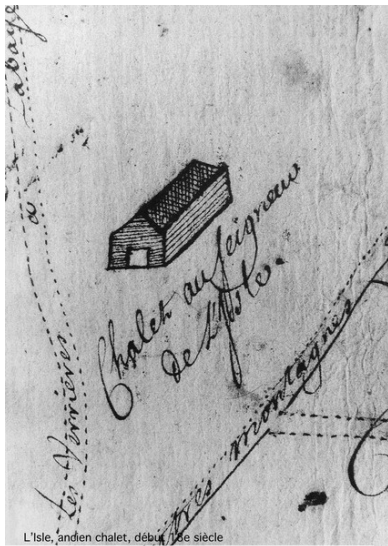 abaye
Chalet au seigneur
de l'Isle.
Les Verrières
tres montagnes
L'Isle, ancien chalet, début 18e siècle